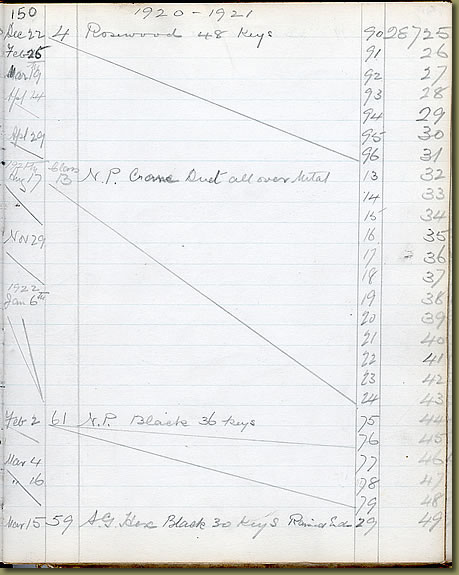 150 1920-1921
Dec 22 4 Rosewood 48 Keys 90 28725
Feb 25 91 26
Mar 19th 92 27
Apl 4 93 28
94 29
Apl 29 95 30
96 31
Aug 17 Class B N.P. Crane Duet all over Metal 13 32
14 33
15 34
Nov 29 16 35
17 36
18 37
1922 19 38
Jan 6th 20 39
21 40
22 41
23 42
24 43
Feb 2 61 N.P. Black 36 Keys 75 44
76 45
Mar 4 77 46
" 16 78 47
79 48
Mar 15 59 A.G. Hex Black 30 Keys Raised Ends 29 49